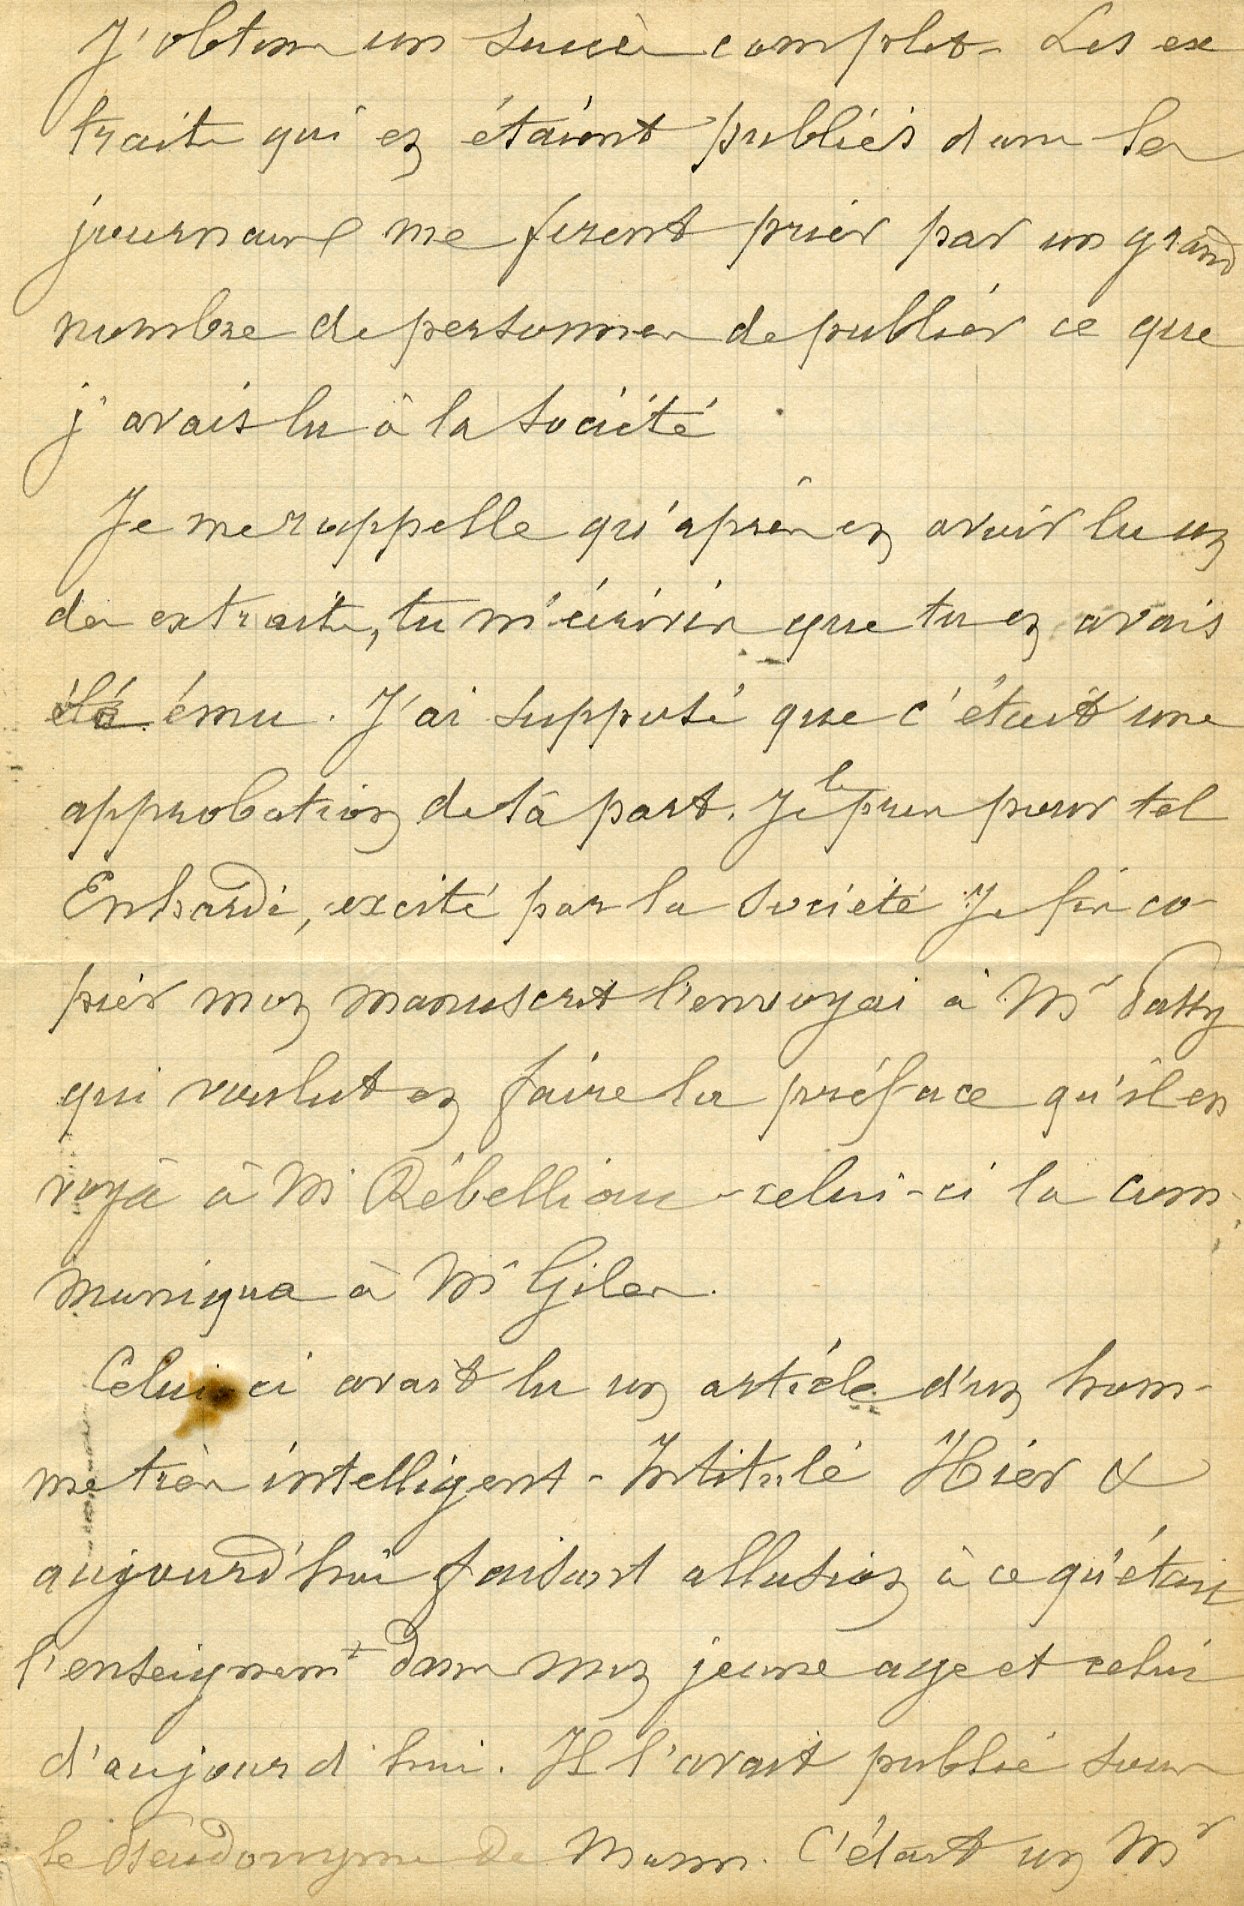 J'obtins un succès complet. Les ex
traits qui en étaient publiés dans les
journaux me firent prier par un grand
nombre de personnes de publier ce que
j'avais lu à la société
Je me rappelle qu'après en avoir lu un
des extraits, tu m'écrivis que tu en avais
été ému. J'ai supposé que c'était une
approbation de ta part. Je le pris pour tel
Enhardi, excité par la société Je fis co-
pier mon manuscrit l'envoyai à Mr Passy
qui voulut en faire la préface qu'il en
voya à Mr Rébelliau - celui-ci la com-
muniqua à Mr Giles.
Celui ci avait lu un article d'un hom-
me très intelligent - Intitulé Hier &
aujourd'hui faisant allusion à ce qu'était
l'enseignemt dans mon jeune age et celui
d'aujourd'hui. Il l'avait publié sous
le pseudonyme de C'était un Mr